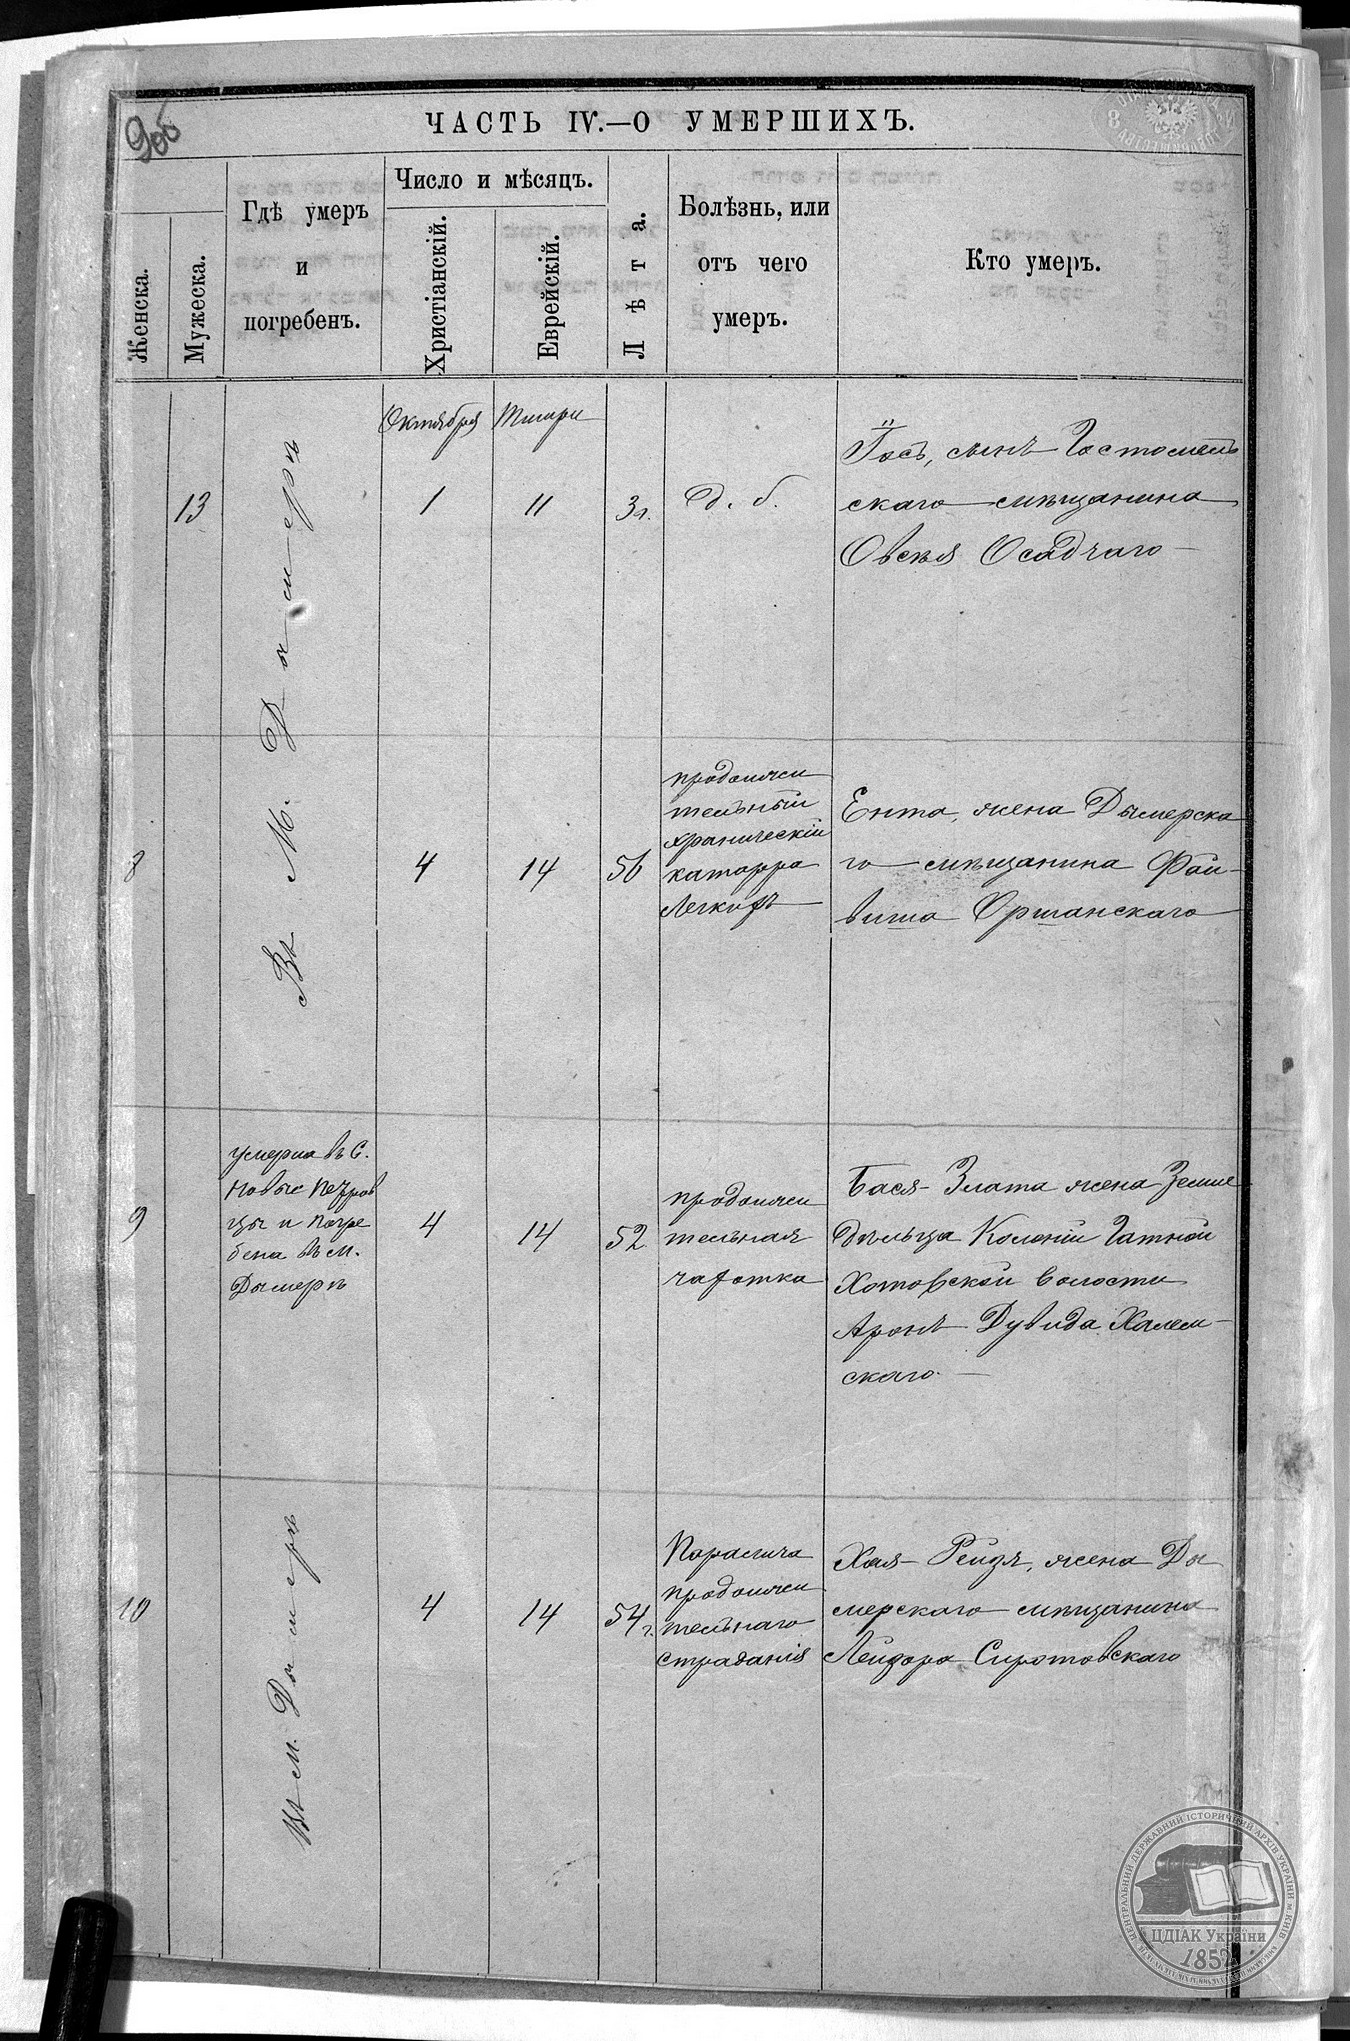 9об
ЧАСТЬ IV.—О УМЕРШИХЪ.
Женска.
Мужеска.
Гдѣ умеръ
и
погребенъ.
Число и мѣсяцъ.
Христіанскій.
Еврейскій.
Лѣта.
Болѣзнь, или
отъ чего
умеръ.
Кто умеръ.
Октября
Тишри
13
Въ М. Дымерѣ
1
11
3 г.
д. б.
Іосъ, сынъ Гостомель
скаго мѣщанина
Овсѣя Осадчаго
8
4
14
56
продолжи
тельный
хроническій
катарра
Легкихъ
Ента, жена Дымерска
го мѣщанина Фай-
виша Оршанскаго
9
умерла въ С.
Новые Петров
цы и погре
бена въ м.
Дымерѣ
4
14
52
продолжи
тельная
чахотка
Бася-Злата жена Земле
дѣльца Колоніи Гатной
Хотовской волости
Аронъ Дувида Халем-
скаго.
10
Въ м. Дымерѣ
4
14
54 г.
Паралича
продолжи
тельнаго
страданія
Хая-Рейзя, жена Ды
мерскаго мѣщанина
Лейзора Сиротовскаго
ЦЕНТРАЛЬНИЙ ДЕРЖАВНИЙ ІСТОРИЧНИЙ АРХІВ УКРАЇНИ м. КИЇВ
ЦДІАК України
1852